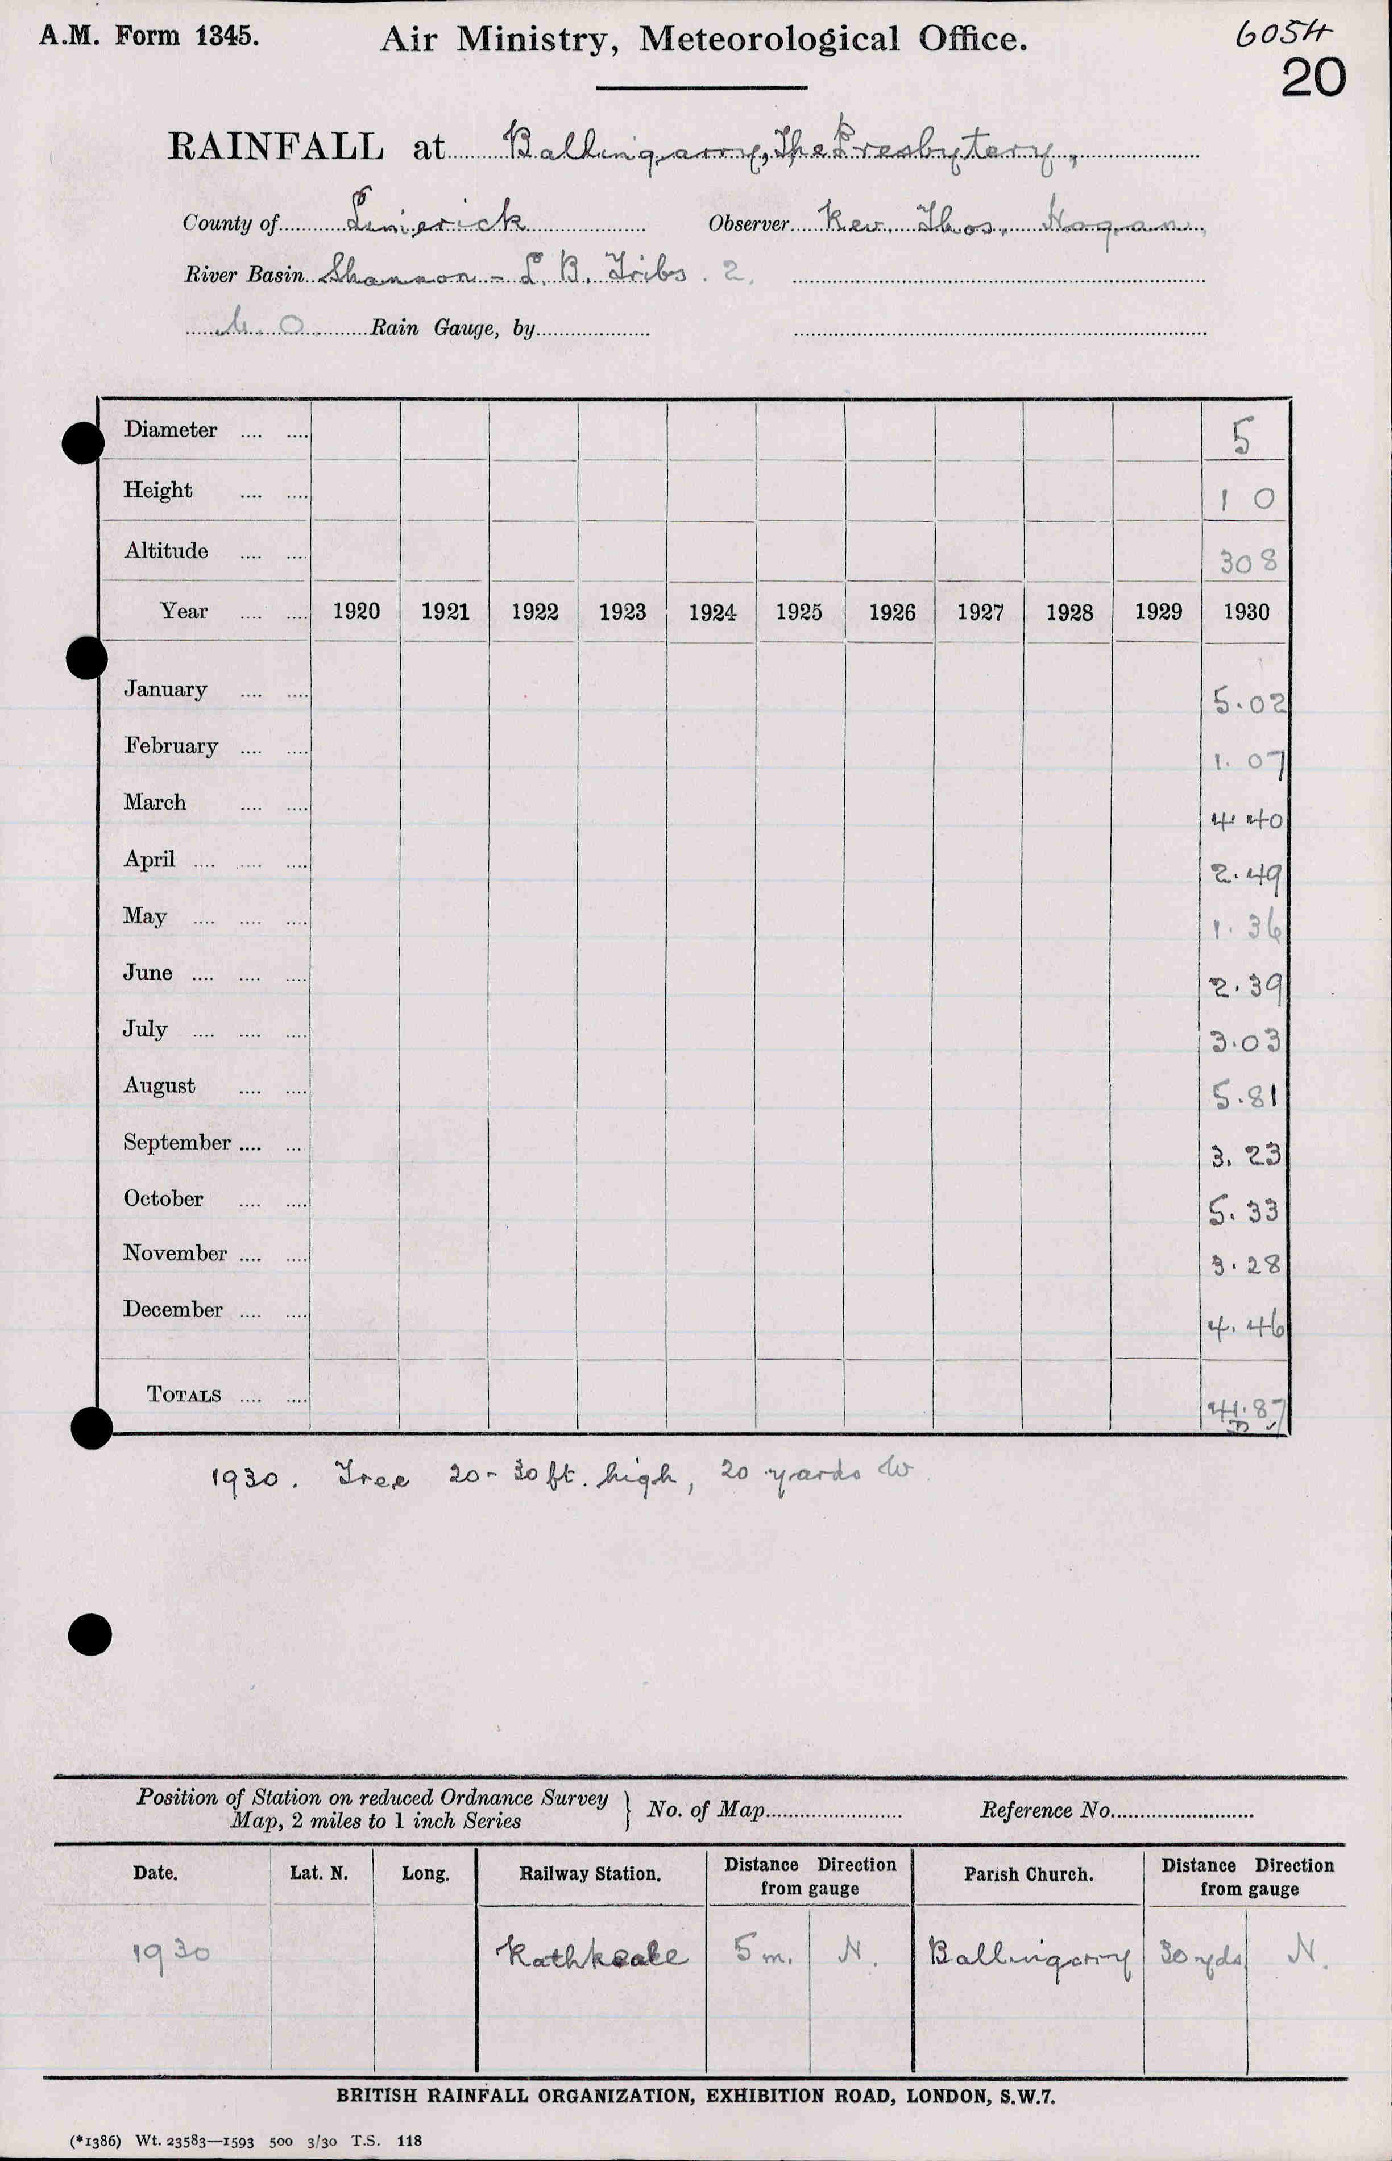 A.M. Form 1345.
Air Ministry, Meteorological Office.
6054
20
RAINFALL at Ballingarry, The Presbytery,
County of Limerick Observer Rev. Thos. Hogan,
River Basin Shannon - L. B. Tribs. 2.
M. O. Rain Gauge, by
Diameter .... .... 5
Height .... .... 1 0
Altitude .... .... 308
Year .... .... 1920 1921 1922 1923 1924 1925 1926 1927 1928 1929 1930
January .... .... 5.02
February .... .... 1.07
March .... .... 4.40
April .... .... .... 2.49
May .... .... .... 1.36
June .... .... .... 2.39
July .... .... .... 3.03
August .... .... 5.81
September .... .... 3.23
October .... .... 5.33
November .... .... 3.28
December .... .... 4.46
TOTALS .... .... 41.87
1930. Tree 20-30 ft. high, 20 yards W.
Position of Station on reduced Ordnance Survey
Map, 2 miles to 1 inch Series } No. of Map Reference No.
Date. Lat. N. Long. Railway Station. Distance Direction from gauge Parish Church. Distance Direction from gauge
1930 Rathkeale 5 m. N. Ballingarry 30 yds N.
BRITISH RAINFALL ORGANIZATION, EXHIBITION ROAD, LONDON, S.W.7.
(*1386) Wt. 23583—1593 500 3/30 T.S. 118